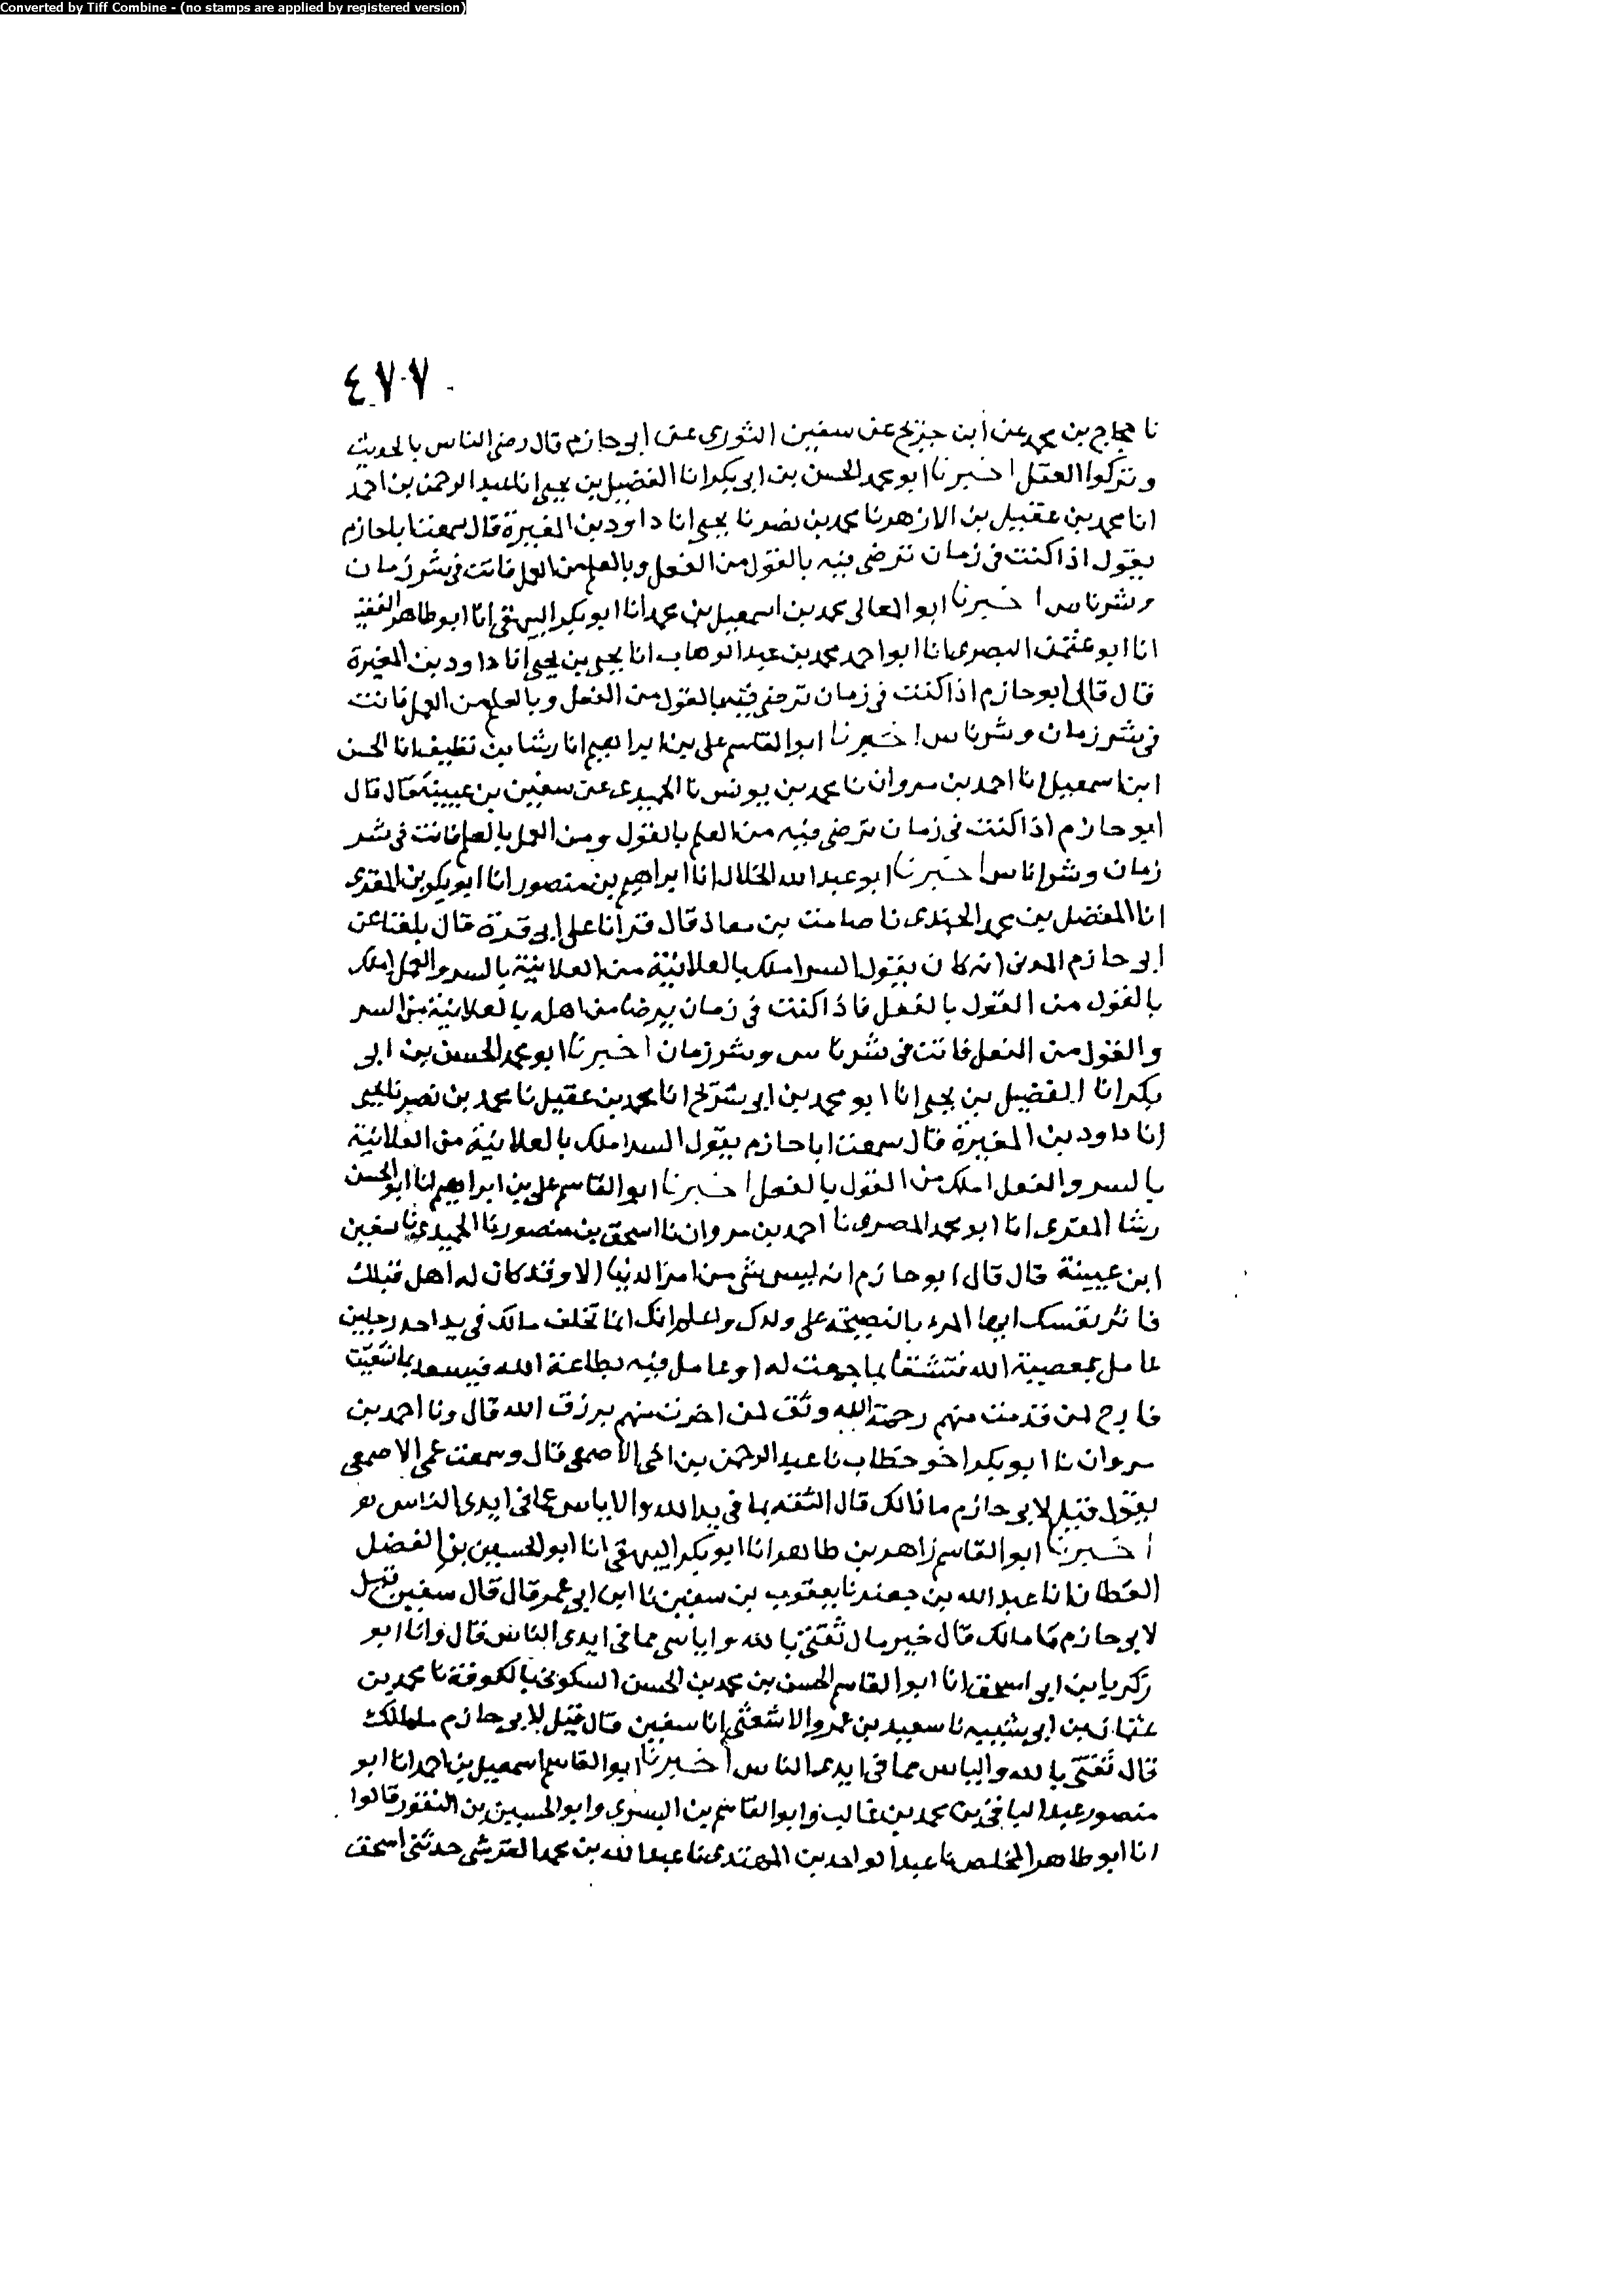 Converted by Tiff Combine - (no stamps are applied by registered version)
٤٧٧
نا حجاج بن محمد عن ابن جريج عن سفين الثوري عن ابي حازم قال رضي الناس بالحديث
وتركوا العمل اخبرنا ابو محمد الحسن بن ابي بكر انا الفضيل بن يحيى انا عبد الرحمن بن احمد
انا محمد بن عقيل بن الازهر نا محمد بن نصر نا يحيى انا داود بن المغيرة قال سمعت اباحازم
يقول اذا كنت في زمان ترضى فيه بالقول من الفعل وبالعلم من العمل فانت في شر زمان
وشر ناس اخبرنا ابو المعالي محمد بن اسمعيل بن محمد انا ابو بكر البيهقي انا ابو طاهر الفقيه
انا ابو عثمن البصري انا ابو احمد محمد بن عبد الوهاب انا يحيى بن يحيى انا داود بن المغيرة
قال قال لي ابو حازم اذا كنت في زمان ترضى فيه بالقول من الفعل وبالعلم من العمل فانت
في شر زمان وشر ناس اخبرنا ابو القاسم علي بن ابراهيم انا رشا بن نظيف انا الحسن
ابن اسمعيل انا احمد بن مروان نا محمد بن يونس نا الحميدي عن سفين بن عيينة قال قال
ابو حازم اذا كنت في زمان ترضى فيه من العلم بالقول ومن العمل بالعلم فانت في شر
زمان وشر اناس اخبرنا ابو عبد الله الخلال انا ابراهيم بن منصور انا ابو بكر بن المقرى
انا المفضل بن محمد الجندي نا صامت بن معاذ قال قرانا على ابي قرة قال بلغنا عن
ابي حازم المدني انه كان يقول السر املك بالعلانية من العلانية بالسر والعمل املك
بالقول من القول بالفعل فاذا كنت في زمان يرضا من اهله بالعلانية من السر
والقول من الفعل فانت في شر ناس وشر زمان اخبرنا ابو محمد الحسن بن ابي
بكر انا الفضيل بن يحيى انا ابو محمد بن ابي شريح انا محمد بن عقيل نا محمد بن نصر نا يحيى
انا داود بن المغيرة قال سمعت ابا حازم يقول السر املك بالعلانية من العلانية
بالسر والفعل املك من القول بالفعل اخبرنا ابو القاسم علي بن ابراهيم انا ابو الحسن
رشا المقرى انا ابو محمد المصري نا احمد بن مروان نا اسحق بن منصور نا الحميدي نا سفين
ابن عيينة قال قال ابو حازم انه ليس شي من امر الدنيا الا وقد كان له اهل قبلك
فاثر نفسك ايها المرء بالنصيحة على ولدك واعلم انك انما تخلف مالك في يد احد رجلين
عامل بمعصية الله فتشقا بما جمعت له او عامل فيه بطاعة الله فيسعد بما شقيت
فارج لمن قدمت منهم رحمة الله وثق لمن اخرت منهم برزق الله قال ونا احمد بن
مروان نا ابو بكر اخو خطاب نا عبد الرحمن بن اخي الاصمعي قال وسمعت عمي الاصمعي
يقول قيل لابي حازم ما مالك قال الثقة بما في يد الله والاياس عما في ايدي الناس
اخبرنا ابو القاسم زاهر بن طاهر انا ابو بكر البيهقي انا ابو الحسين بن الفضل
القطان انا عبد الله بن جعفر نا يعقوب بن سفين نا ابن ابي عمر قال قال سفين قيل
لابي حازم ما مالك قال خير مال ثقتي بالله واياسي مما في ايدي الناس قال وانا ابو
زكريا بن ابي اسحق انا ابو القاسم الحسن بن محمد بن الحسن السكوني بالكوفة نا محمد بن
عثمان بن ابي شيبه نا سعيد بن عمرو الاشعثي انا سفين قال قيل لابي حازم ما مالك
قال ثقتي بالله والياس مما في ايدي الناس اخبرنا ابو القاسم اسمعيل بن احمد انا ابو
منصور عبد الباقي بن محمد بن غالب وابو القاسم بن البسري وابو الحسين بن النقور قالوا
انا ابو طاهر المخلص نا عبد الواحد بن المهتدي نا عبد الله بن محمد القرشي حدثني اسحق